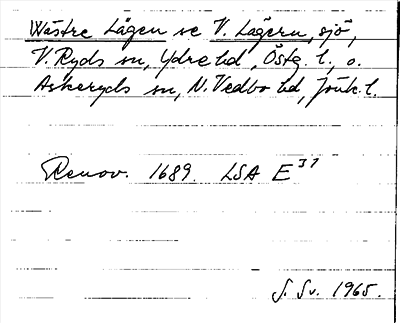 Wästre Lågen se V. Lägern, sjö,
V. Ryds sn, Ydre hd, Östg. l., o.
Askeryds sn, N. Vedbo hd, Jönk. l.
Renov. 1689. LSA E³⁷
S. Sv. 1965.